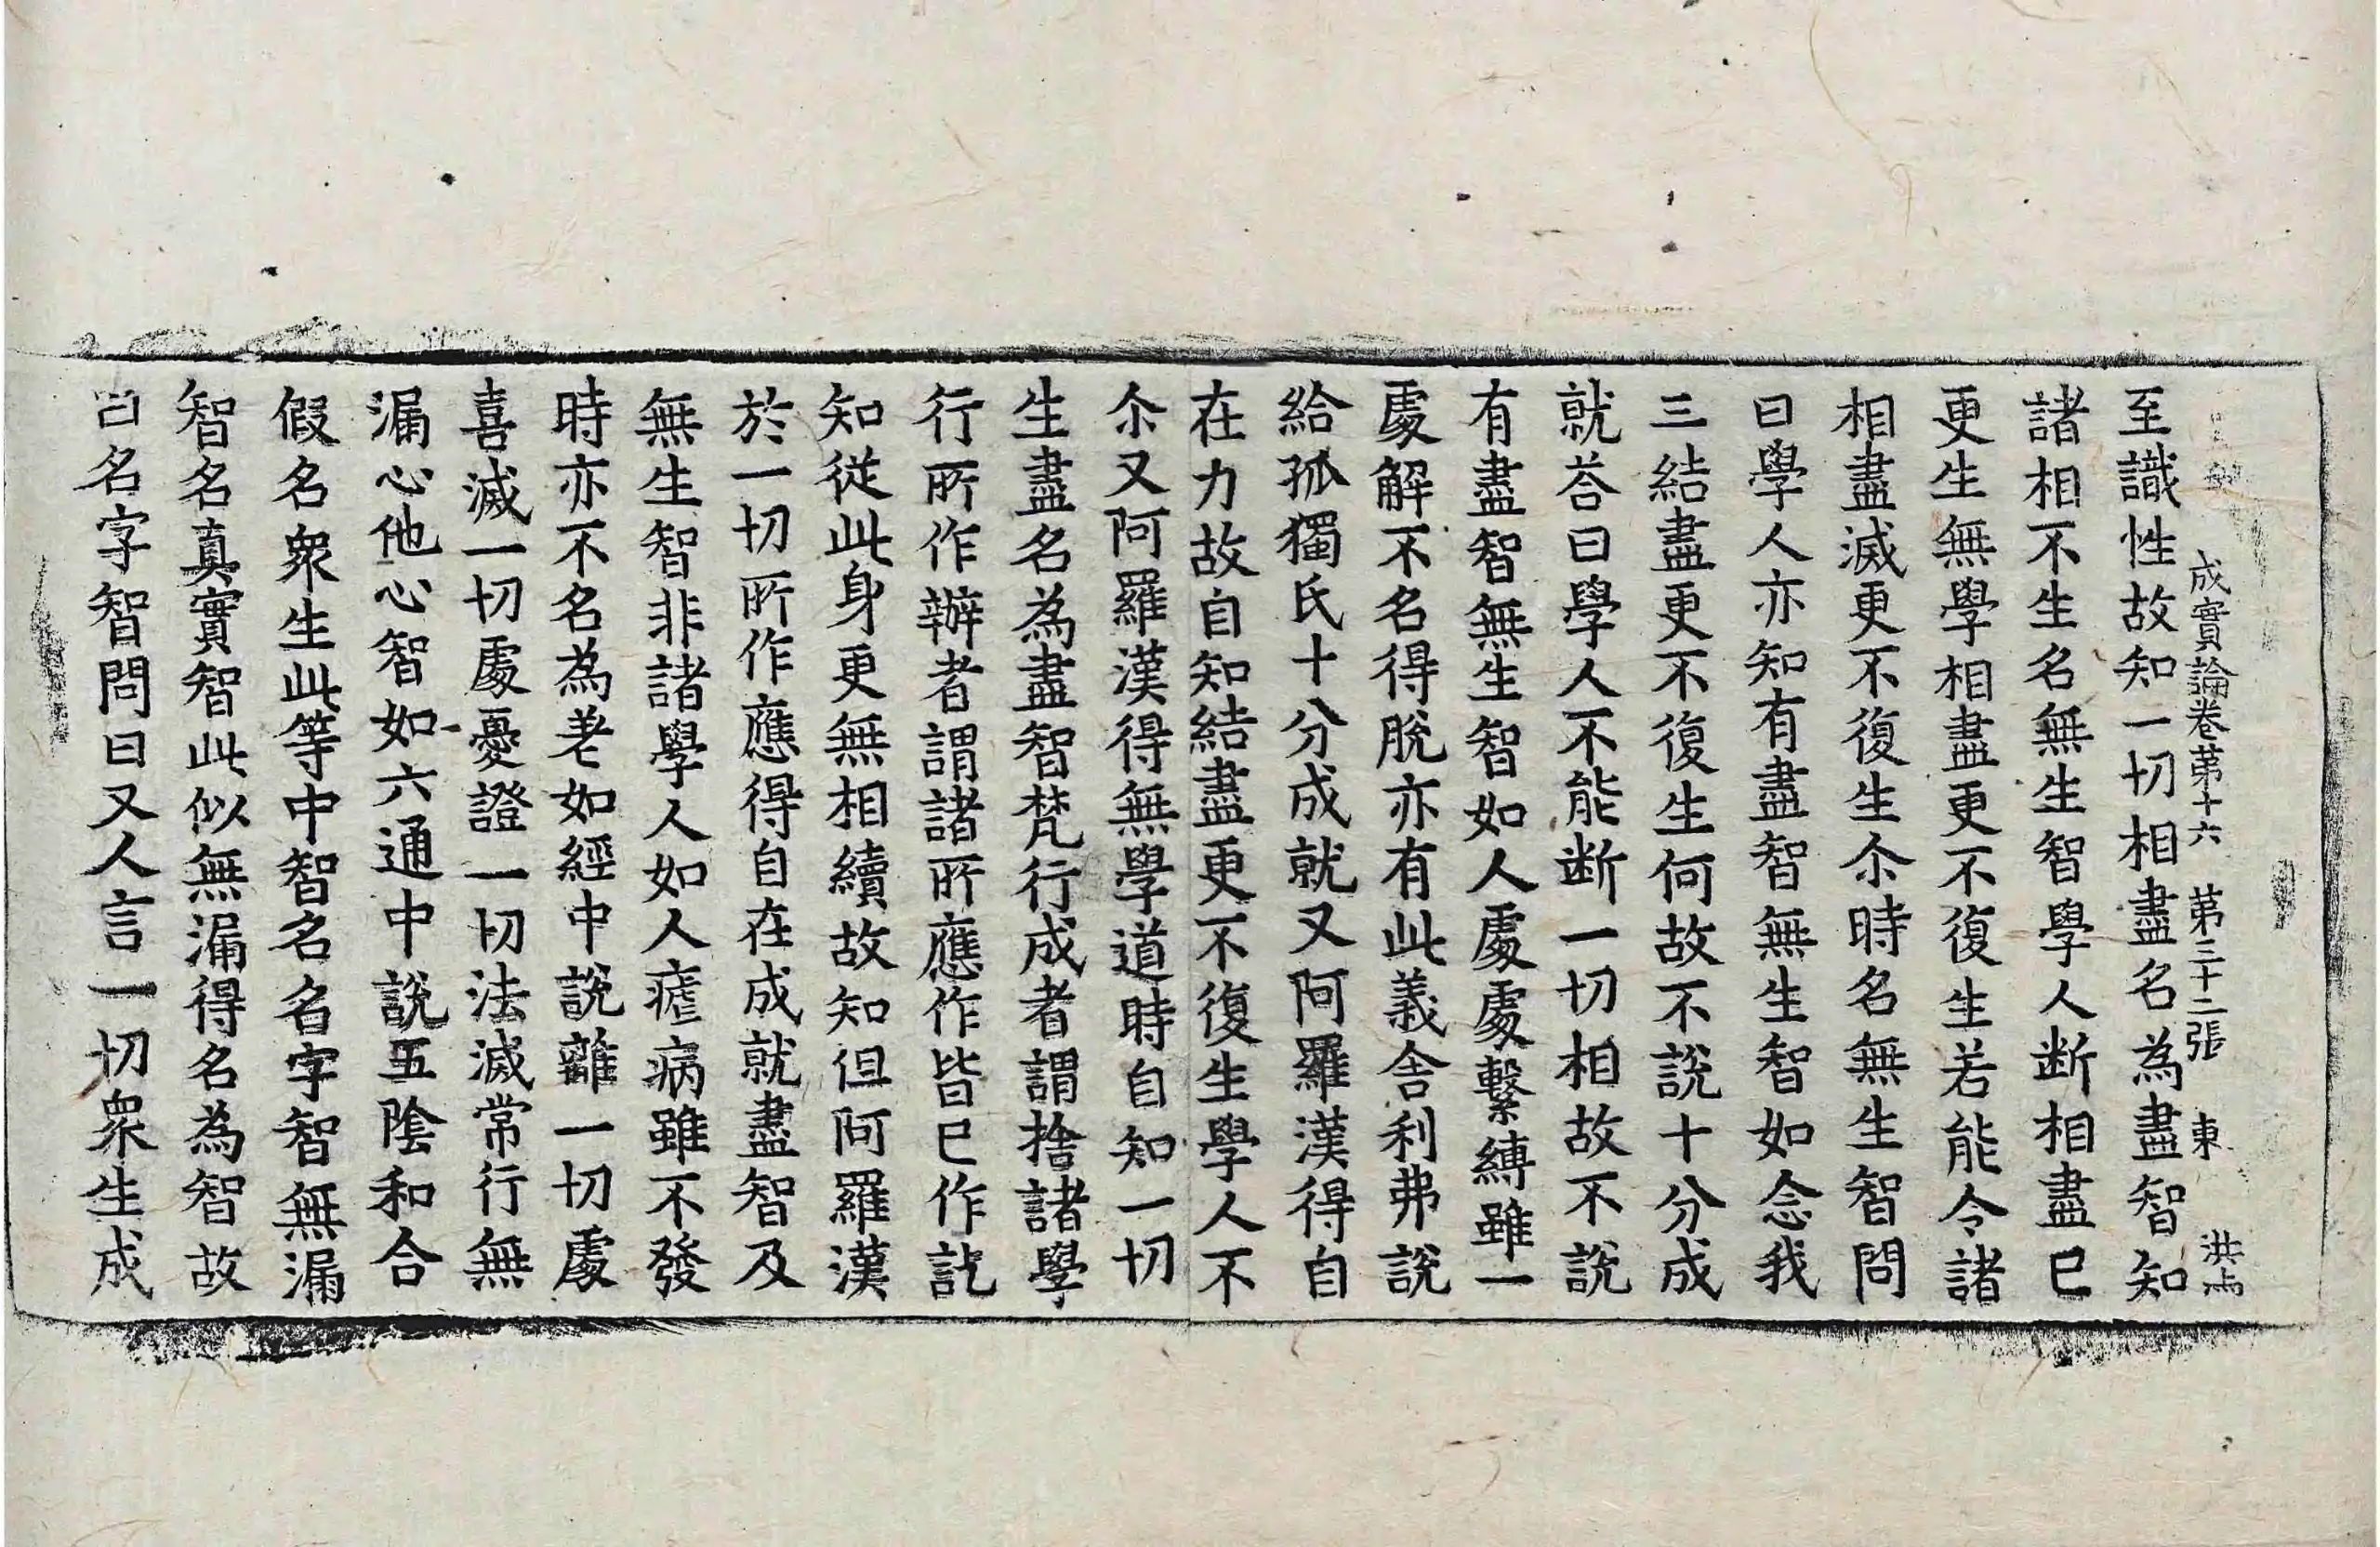 成實論卷第十六 第三十二張 東 洪
至識性故知一切相盡名為盡智知
諸相不生名無生智學人断相盡已
更生無學相盡更不復生若能令諸
相盡滅更不復生尒時名無生智問
曰學人亦知有盡智無生智如念我
三結盡更不復生何故不說十分成
就荅曰學人不能断一切相故不說
有盡智無生智如人處處繫縛雖一
處解不名得脫亦有此義舍利弗說
給孤獨氏十分成就又阿羅漢得自
在力故自知結盡更不復生學人不
尒又阿羅漢得無學道時自知一切
生盡名為盡智梵行成者謂捨諸學
行所作辦者謂諸所應作皆已作訖
知從此身更無相續故知但阿羅漢
於一切所作應得自在成就盡智及
無生智非諸學人如人瘧病雖不發
時亦不名為差如經中說離一切處
喜滅一切處憂證一切法滅常行無
漏心他心智如六通中說五陰和合
假名衆生此等中智名名字智無漏
智名真實智此似無漏得名為智故
曰名字智問曰又人言一切衆生成